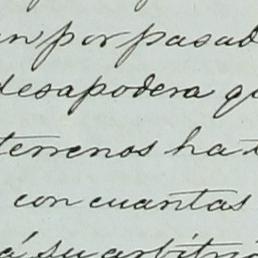 por pasad
desapodera q
terrenos ha
con cuantas
á su arbitri